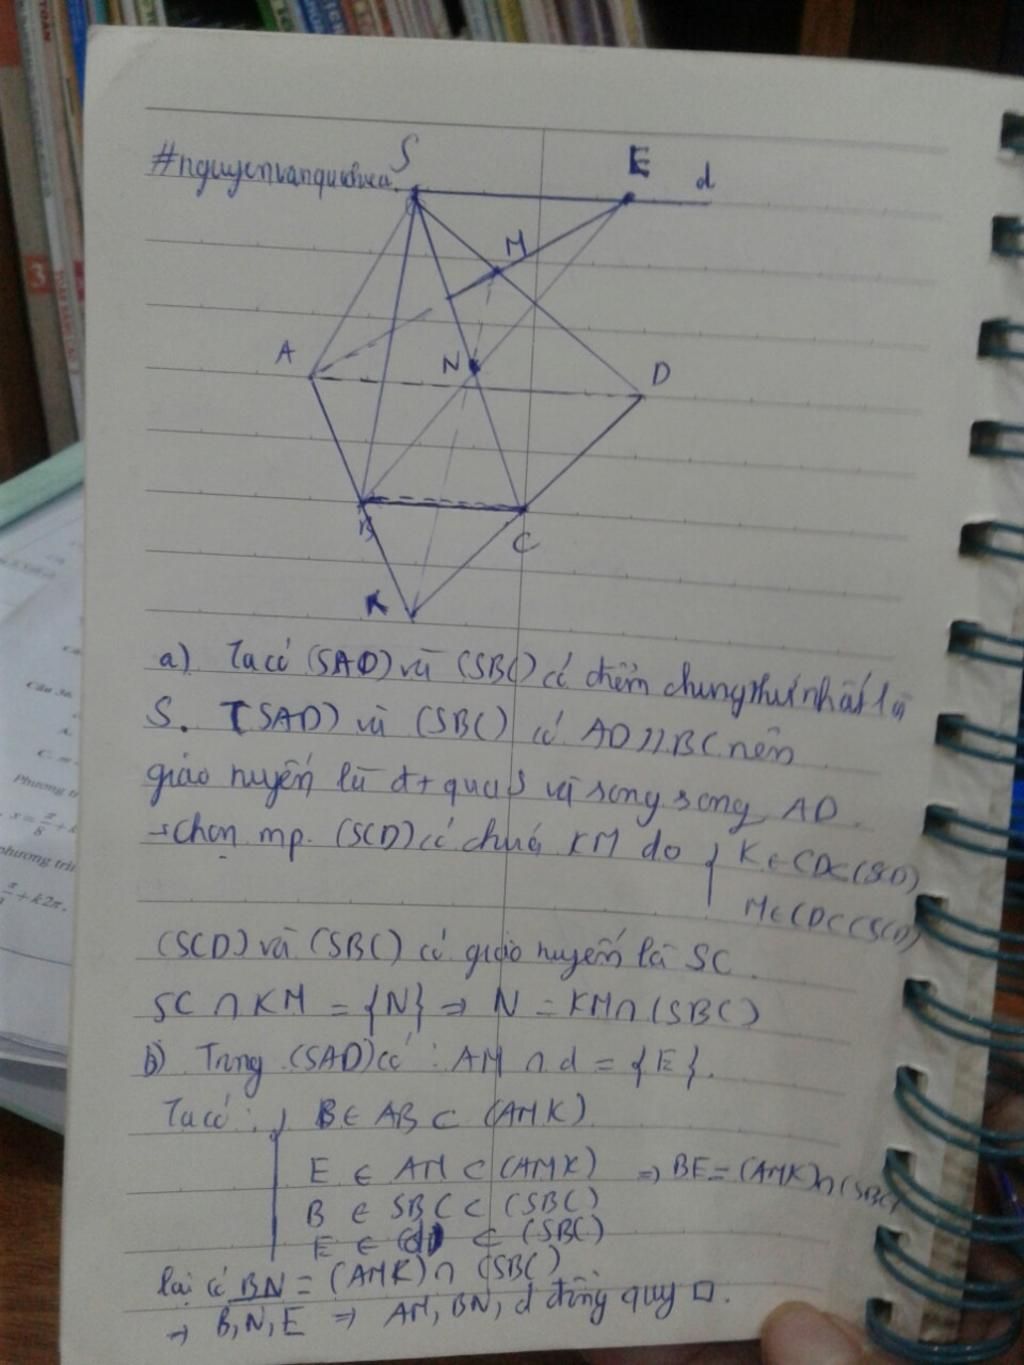 S
E
d
#nguyenvanquikhua
M
A
N
D
B
C
K
a) Ta có (SAD) và (SBC) có điểm chung thứ nhất là
S. (SAD) và (SBC) có AD//BC nên
giao tuyến là đt qua S và song song AD.
→ Chọn mp. (SCD) có chứa KM do { K ∈ CD ⊂ (SCD)
M ∈ CD ⊂ (SCD)
(SCD) và (SBC) có giao tuyến là SC.
SC ∩ KM = {N} ⇒ N = KM ∩ (SBC)
b) Trong (SAD) có : AM ∩ d = {E}.
Ta có : { B ∈ AB ⊂ (AMK)
E ∈ AM ⊂ (AMK) ⇒ BE = (AMK) ∩ (SBC)
B ∈ SBC ⊂ (SBC)
E ∈ (d) ⊂ (SBC)
lại có BN = (AMK) ∩ (SBC)
⇒ B, N, E ⇒ AM, BN, d đồng quy □.
3
TOÁN
Câu 36.
A.
C.
Phương tr
phương trìn
+ k2π,